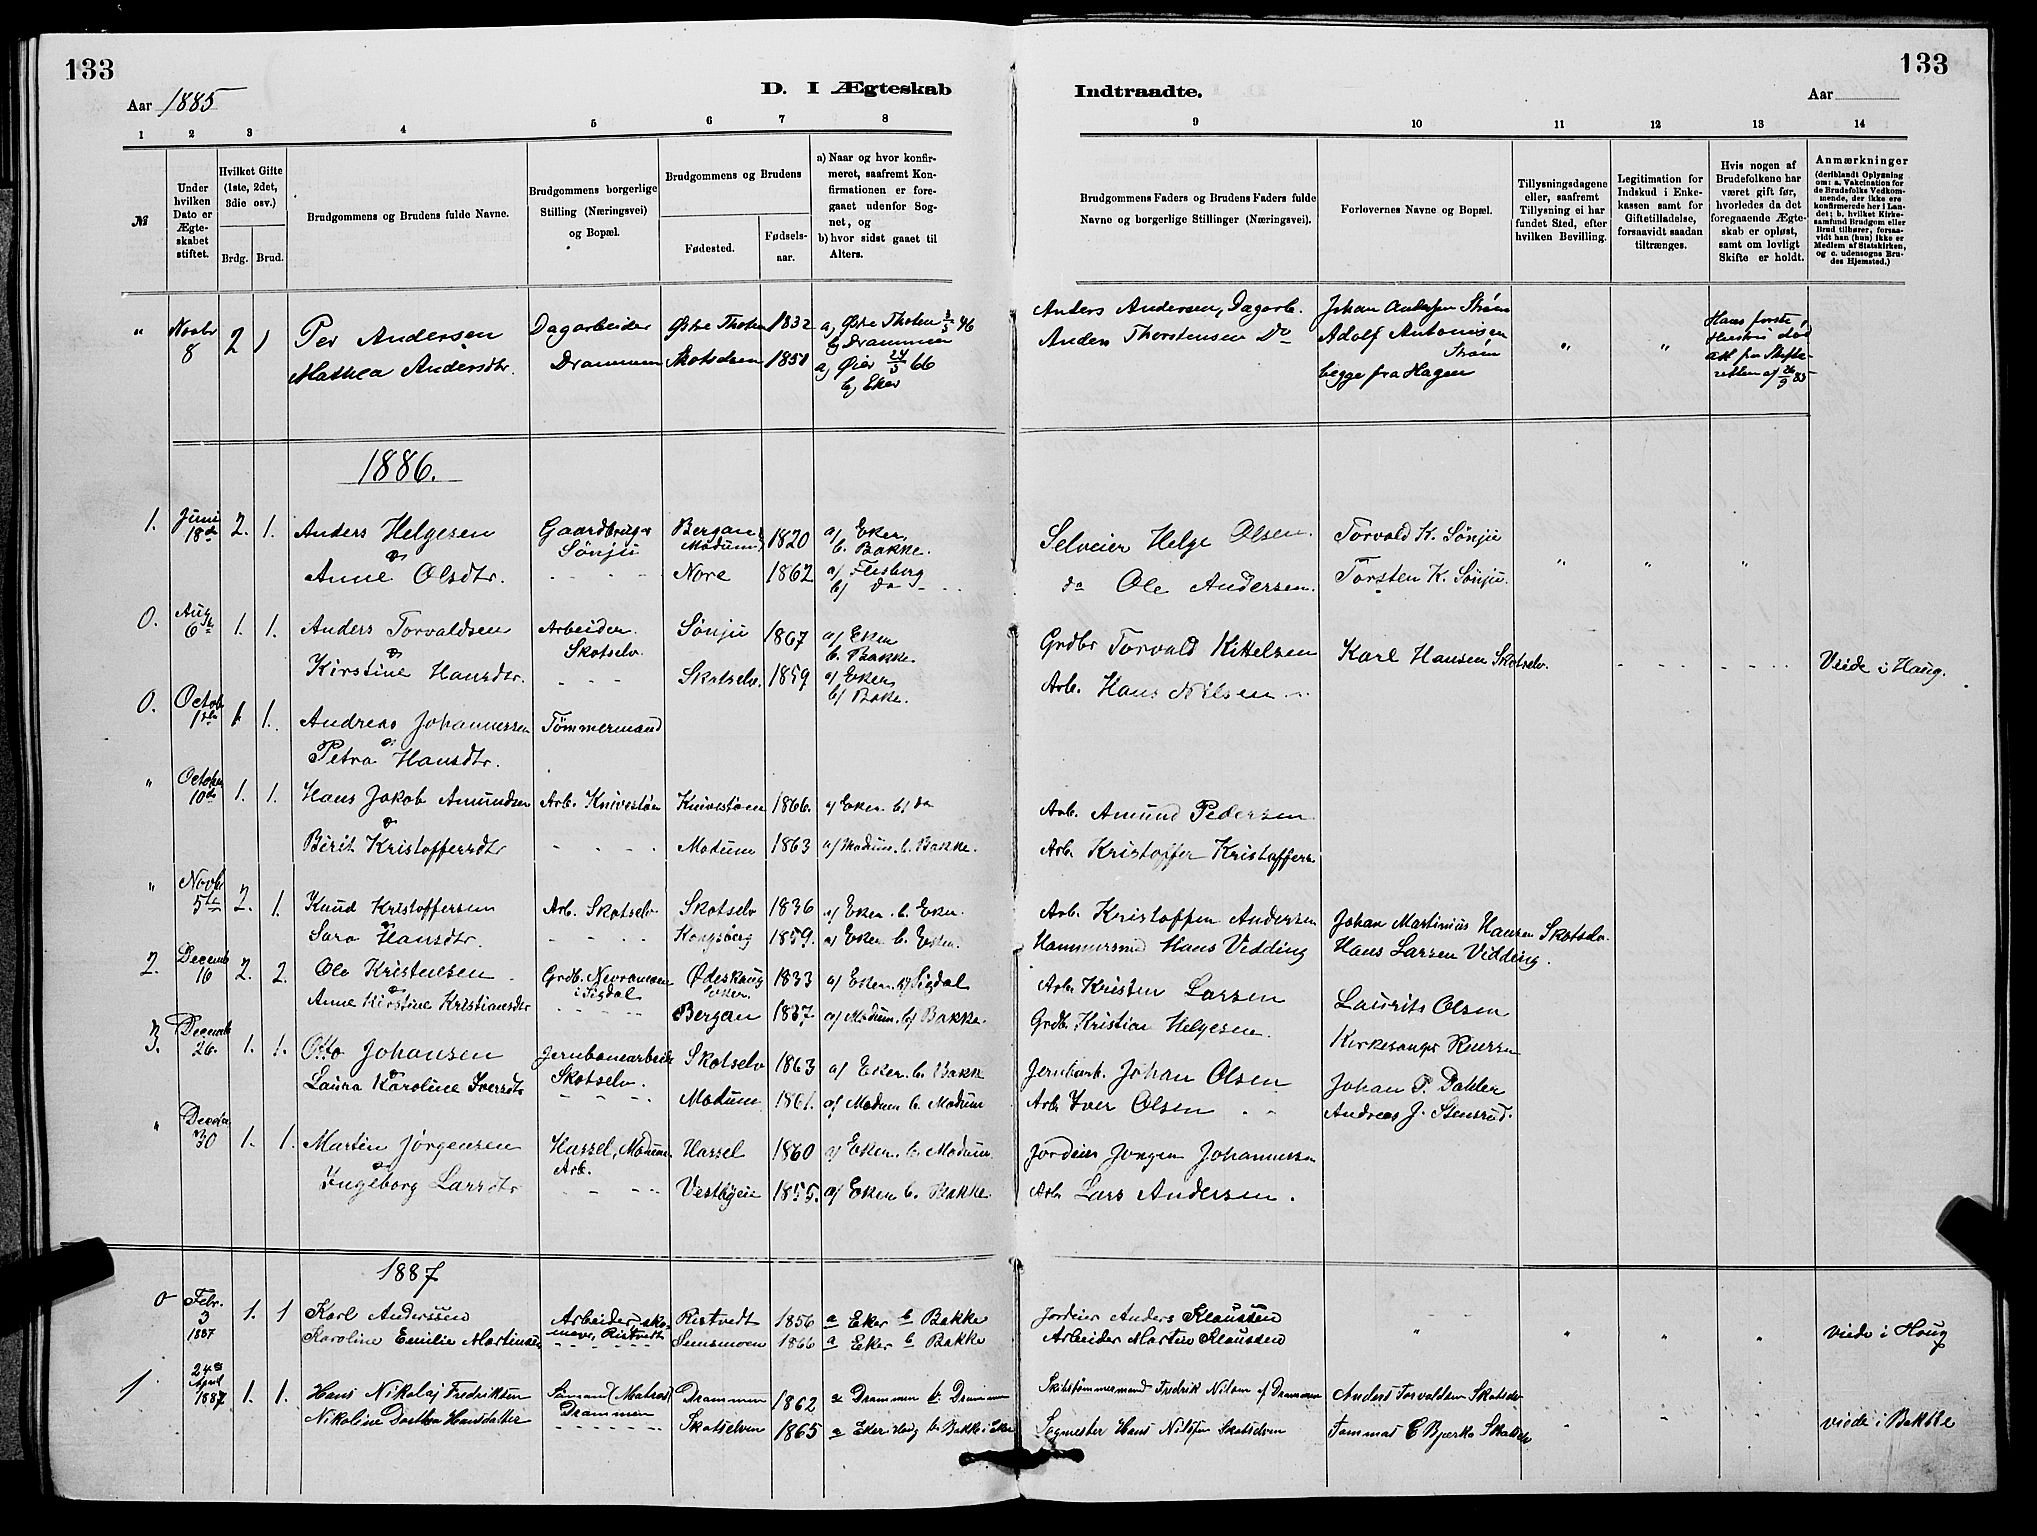 133
133
Aar 1885
D. I Ægteskab
Indtraadte.
Aar
1 2 3 4 5 6 7 8
9 10 11 12 13 14
№
Under hvilken Dato er Ægteskabet stiftet.
Hvilket Gifte (1ste, 2det, 3die osv.)
Brdg. Brud.
Brudgommens og Brudens fulde Navne.
Brudgommens borgerlige Stilling (Næringsvei) og Bopæl.
Brudgommens og Brudens
Fødested.
Fødselsaar.
a) Naar og hvor konfirmeret, saafremt Konfirmationen er foregaaet udenfor Sognet, og
b) hvor sidst gaaet til Alters.
Brudgommens Faders og Brudens Faders fulde Navne og borgerlige Stillinger (Næringsvei).
Forlovernes Navne og Bopæl.
Tillysningsdagene eller, saafremt Tillysning ei har fundet Sted, efter hvilken Bevilling.
Legitimation for Indskud i Enkekassen samt for Giftetilladelse, forsaavidt saadan tiltrænges.
Hvis nogen af Brudefolkene har været gift før, hvorledes da det foregaaende Ægteskab er opløst, samt om lovligt Skifte er holdt.
Anmærkninger (deriblandt Oplysning om: a. Vakcination for de Brudefolks Vedkommende, der ikke ere konfirmerede her i Landet; b. hvilket Kirkesamfund Brudgom eller Brud tilhører, forsaavidt han (hun) ikke er Medlem af Statskirken, og c. udensogns Brudes Hjemsted.)
" Novbr 8 2 1 Per Andersen Dagarbeider Østre Thoten 1832 a) Østre Thoten 3/5 46 b) Drammen Anders Andersen, Dagarb. Johan Andersen Strøm
Mathea Andersdtr. Drammen Skotselven 1851 a) Øier 24/5 66 b) Eker Anders Thorstensen Do Adolf Antonisen Strøm begge fra Hagen " " Hans første Hustru død
1886.
1. Juni 18de 2. 1. Anders Helgesen Gaardbruger Sønju Bergan Modum 1820 a/ Eker b. Bakke. Selveier Helge Olsen. Torvald K. Sønju
& Anne Olsdtr. - - - Nore 1862 a/ Flesberg b/ do Do Ole Andersen. Torsten K. Sønju. " " "
0. Aug 6te 1. 1. Anders Torvaldsen Arbeider Skotselv. Sønju 1867 a/ Eker b. Bakke. Grdbr Torvald Kittelsen Karl Hansen Skotselv. - - - Viede i Haug.
& Kirstine Hansdtr. - - - Skotselv. 1859 a/ Eker b/ Bakke. Arb. Hans Nilsen
0. Octob 1ste 1. 1. Andreas Johannessen Tømmermand
& Petra Hansdtr.
" October 10de 1. 1. Hans Jakob Amundsen Arb. Knivestøen Knivestøen 1866. a/ Eker. b/ do Arb. Amund Pedersen
& Berit Kristoffersdtr - - - Modum 1863 a/ Modum. b. Bakke. Arb. Kristoffer Kristoffers
" Novbr 5te 2. 1. Knud Kristoffersen Arb. Skotselv Skotselv 1836 a/ Eker. b. Eker. Arb. Kristoffer Andersen Johan Martinius Hansen Skotselv
& Sara Hansdtr. - - - Kongsberg 1859. a/ Eker b. Eker. Hammersmed Hans Vidding Hans Larsen Vidding.
2. Decemb 16 2. 2. Ole Kristensen Grdb. Nevramoen i Sigdal Ødeskaug Eker. 1833 a/ Eker. b/ Sigdal Arb. Kristen Larsen Laurits Olsen
& Anne Kirstine Kristiansdtr - - - Bergan 1837 a/ Modum. b/ Bakke. Grdb. Kristian Helgesen. Kirkesanger Ruersen
3. Decemb 26. 1. 1. Otto Johansen Jernbanearbeid Skotselv. Skotselv 1863 a/ Eker. b. Bakke Jernbarb. Johan Olsen Johan P. Dahler
& Laura Karoline Iversdtr - - - Modum 1861. a/ Modum b. Modum Arb. Iver Olsen Andreas J. Stensrud.
" Decbr 30 1. 1. Martin Jørgensen Hassel, Modum Arb. Hassel 1860 a/ Eker. b. Modum. Jordeier Jørgen Johannessen
& Ingeborg Larsdtr - - - Vestbyeie 1855. a/ Eker b. Bakke. Arb. Lars Andersen.
1887
0 Febr. 3 1887 1. 1 Karl Anderssen Arbeider, skomager, Ristvedt Ristvedt 1856 a Eker b Bakke Jordeier Anders Klaussen
Karoline Emilie Martinsen - - - Semsmoen 1866 a Eker b Bakke Arbeider Martin Klaussen " " " " viede i Houg
1 24de April 1887 1. 1. Hans Nikolaj Fredriksen Sømand (Matros) Drammen Drammen 1862 a Drammen b Drammen Skibstømmermand Fredrik Nilsen af Drammen Anders Torvaldsen Skotselv
Nikoline Dorthea Hansdatter - - - Skotselven 1865 a Eker i Houg b Bakke i Eker Sagmester Hans Nilsen Skotselven Tommas C Bjerke Skotselv viede i Bakke